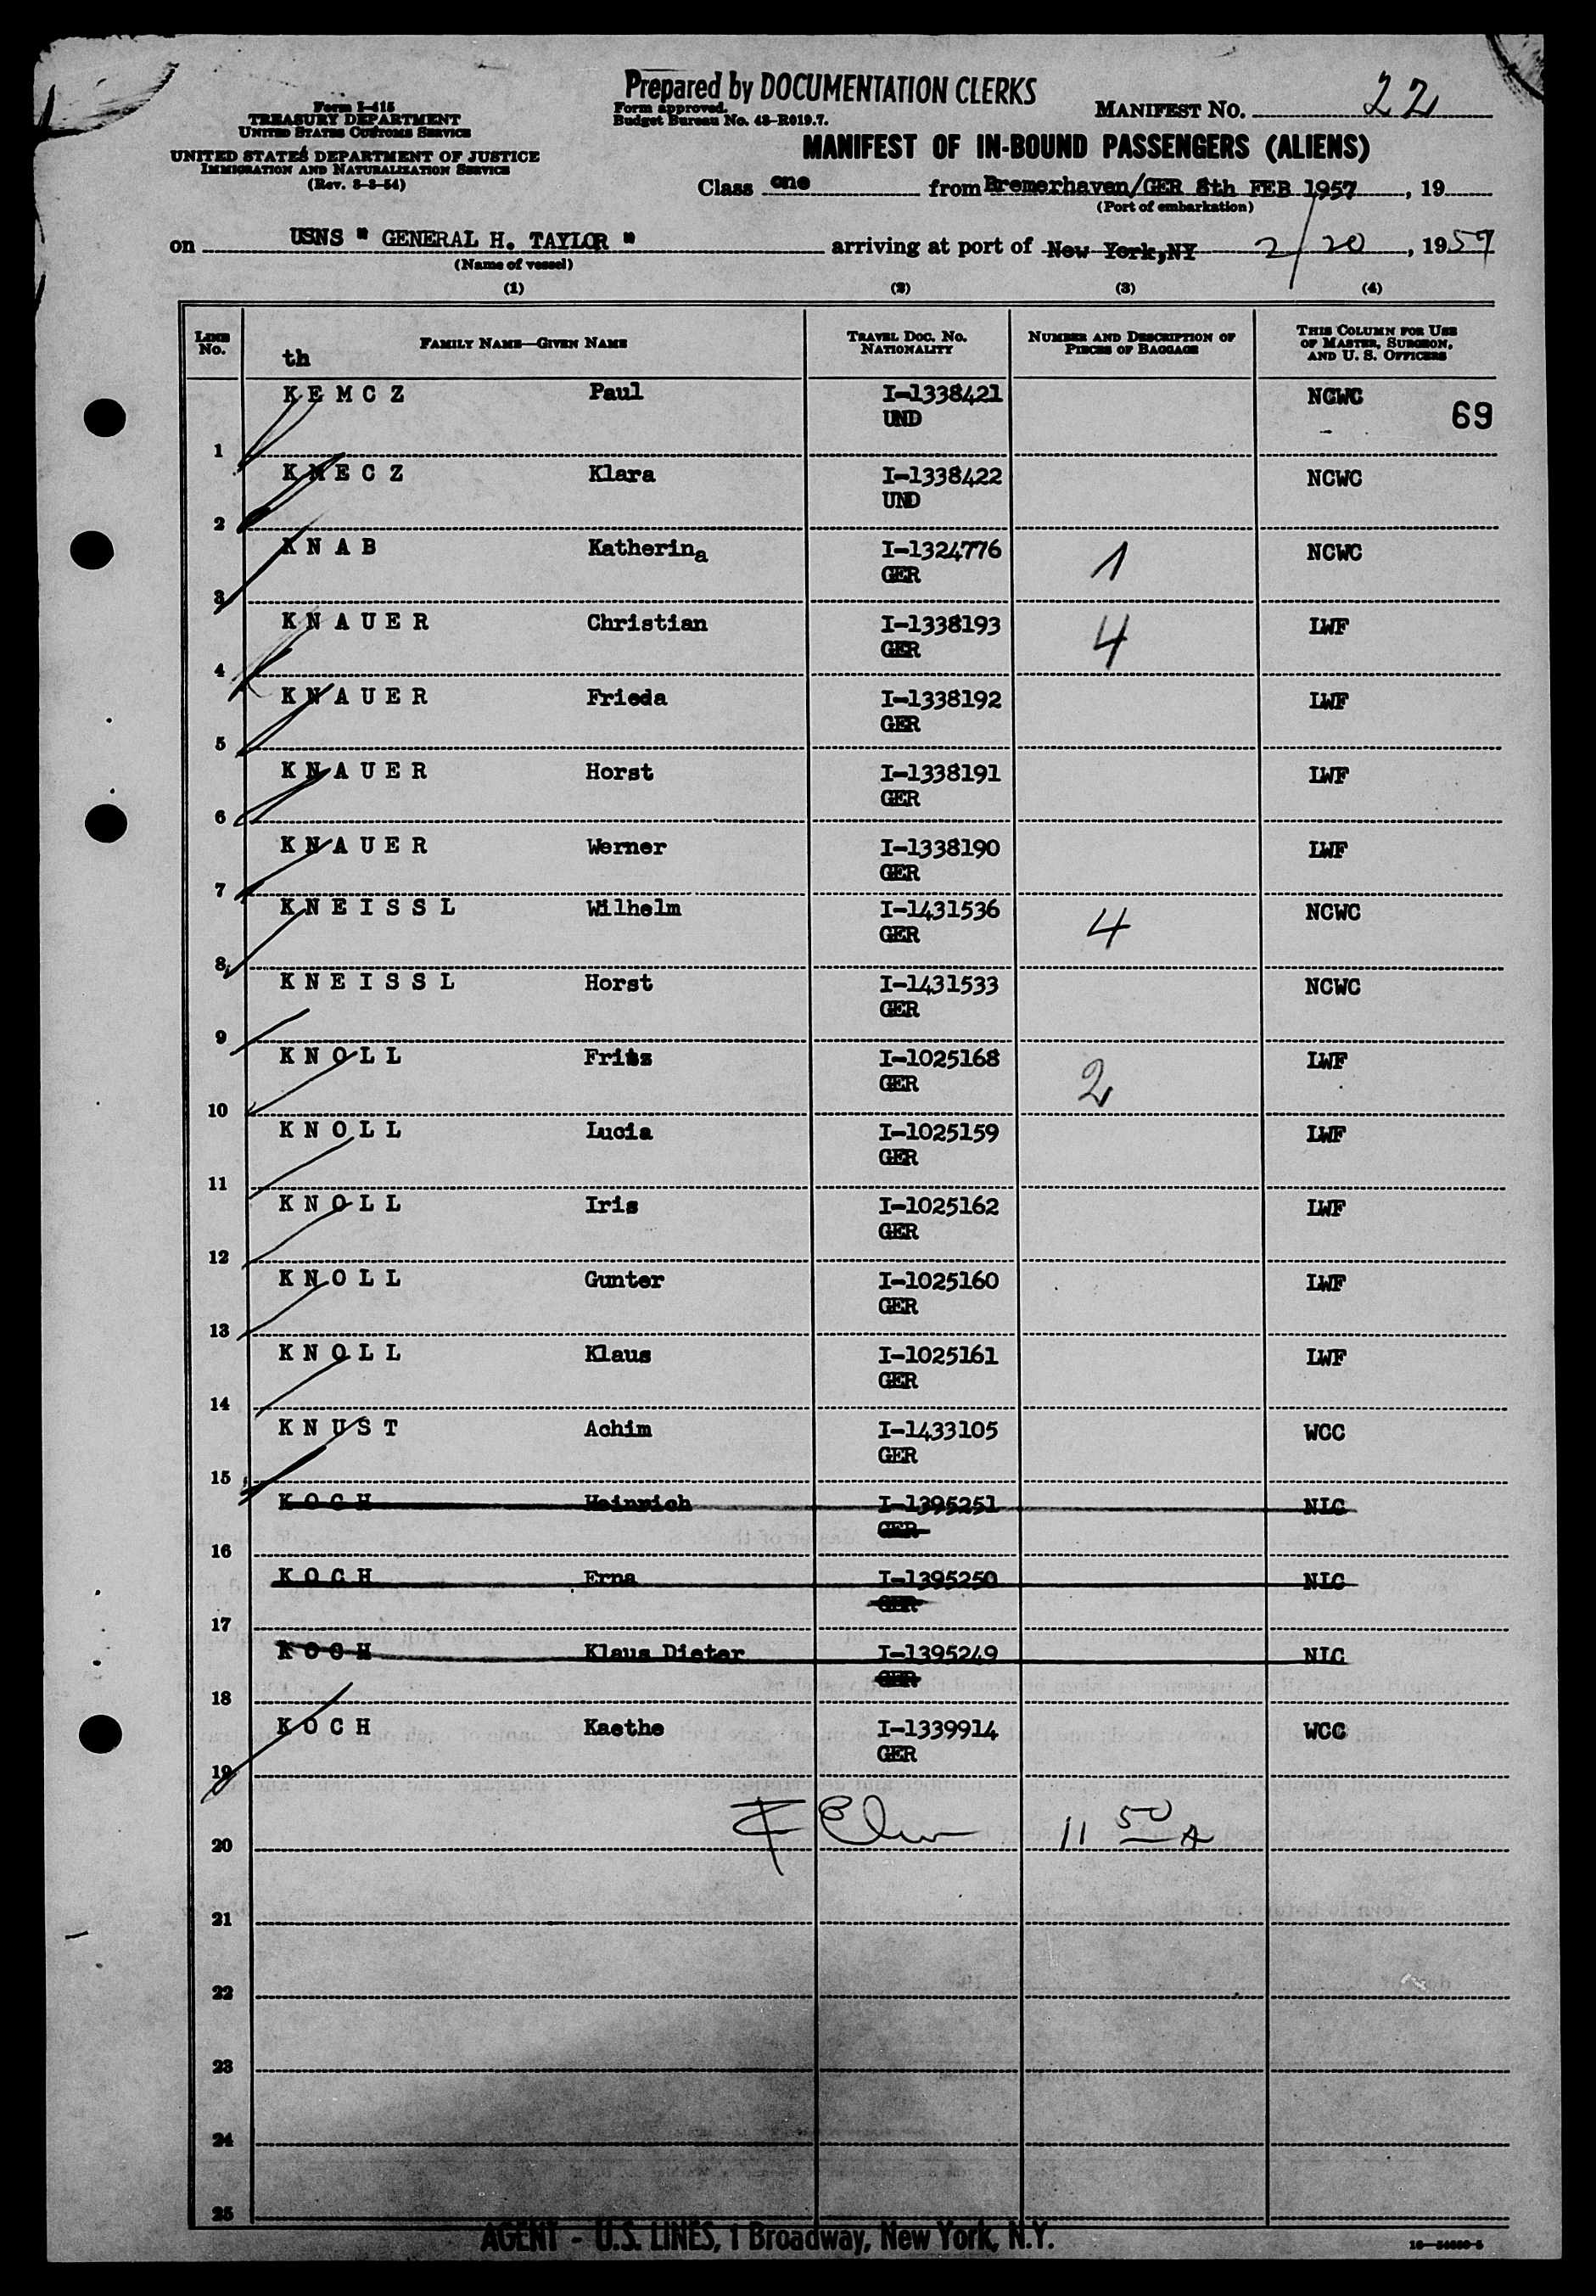 Prepared by DOCUMENTATION CLERKS
Form I-418
TREASURY DEPARTMENT
UNITED STATES CUSTOMS SERVICE
UNITED STATES DEPARTMENT OF JUSTICE
IMMIGRATION AND NATURALIZATION SERVICE
(Rev. 3-3-54)
Form approved.
Budget Bureau No. 43-R019.7.
MANIFEST NO. 22
MANIFEST OF IN-BOUND PASSENGERS (ALIENS)
Class one from Bremerhaven/GER 8th FEB 1957, 19
(Port of embarkation)
on USNS " GENERAL H. TAYLOR " arriving at port of New York,NY 2/20, 1957
(Name of vessel)
(1) (2) (3) (4)
LINE NO. FAMILY NAME—GIVEN NAME TRAVEL DOC. NO. NATIONALITY NUMBER AND DESCRIPTION OF PIECES OF BAGGAGE THIS COLUMN FOR USE OF MASTER, SURGEON, AND U. S. OFFICERS
th
69
1 KEMCZ Paul I-1338421 UND NCWC
2 KMECZ Klara I-1338422 UND NCWC
3 KNAB Katherina I-1324776 GER 1 NCWC
4 KNAUER Christian I-1338193 GER 4 LWF
5 KNAUER Frieda I-1338192 GER LWF
6 KNAUER Horst I-1338191 GER LWF
7 KNAUER Werner I-1338190 GER LWF
8 KNEISSL Wilhelm I-1431536 GER 4 NCWC
9 KNEISSL Horst I-1431533 GER NCWC
10 KNOLL Fritz I-1025168 GER 2 LWF
11 KNOLL Lucia I-1025159 GER LWF
12 KNOLL Iris I-1025162 GER LWF
13 KNOLL Gunter I-1025160 GER LWF
14 KNOLL Klaus I-1025161 GER LWF
15 KNUST Achim I-1433105 GER WCC
16 KOCH Heinrich I-1395251 GER NLC
17 KOCH Erna I-1395250 GER NLC
18 KOCH Klaus Dieter I-1395249 GER NLC
19 KOCH Kaethe I-1339914 GER WCC
20 11 50 A
21
22
23
24
25
AGENT - U.S. LINES, 1 Broadway, New York, N.Y.